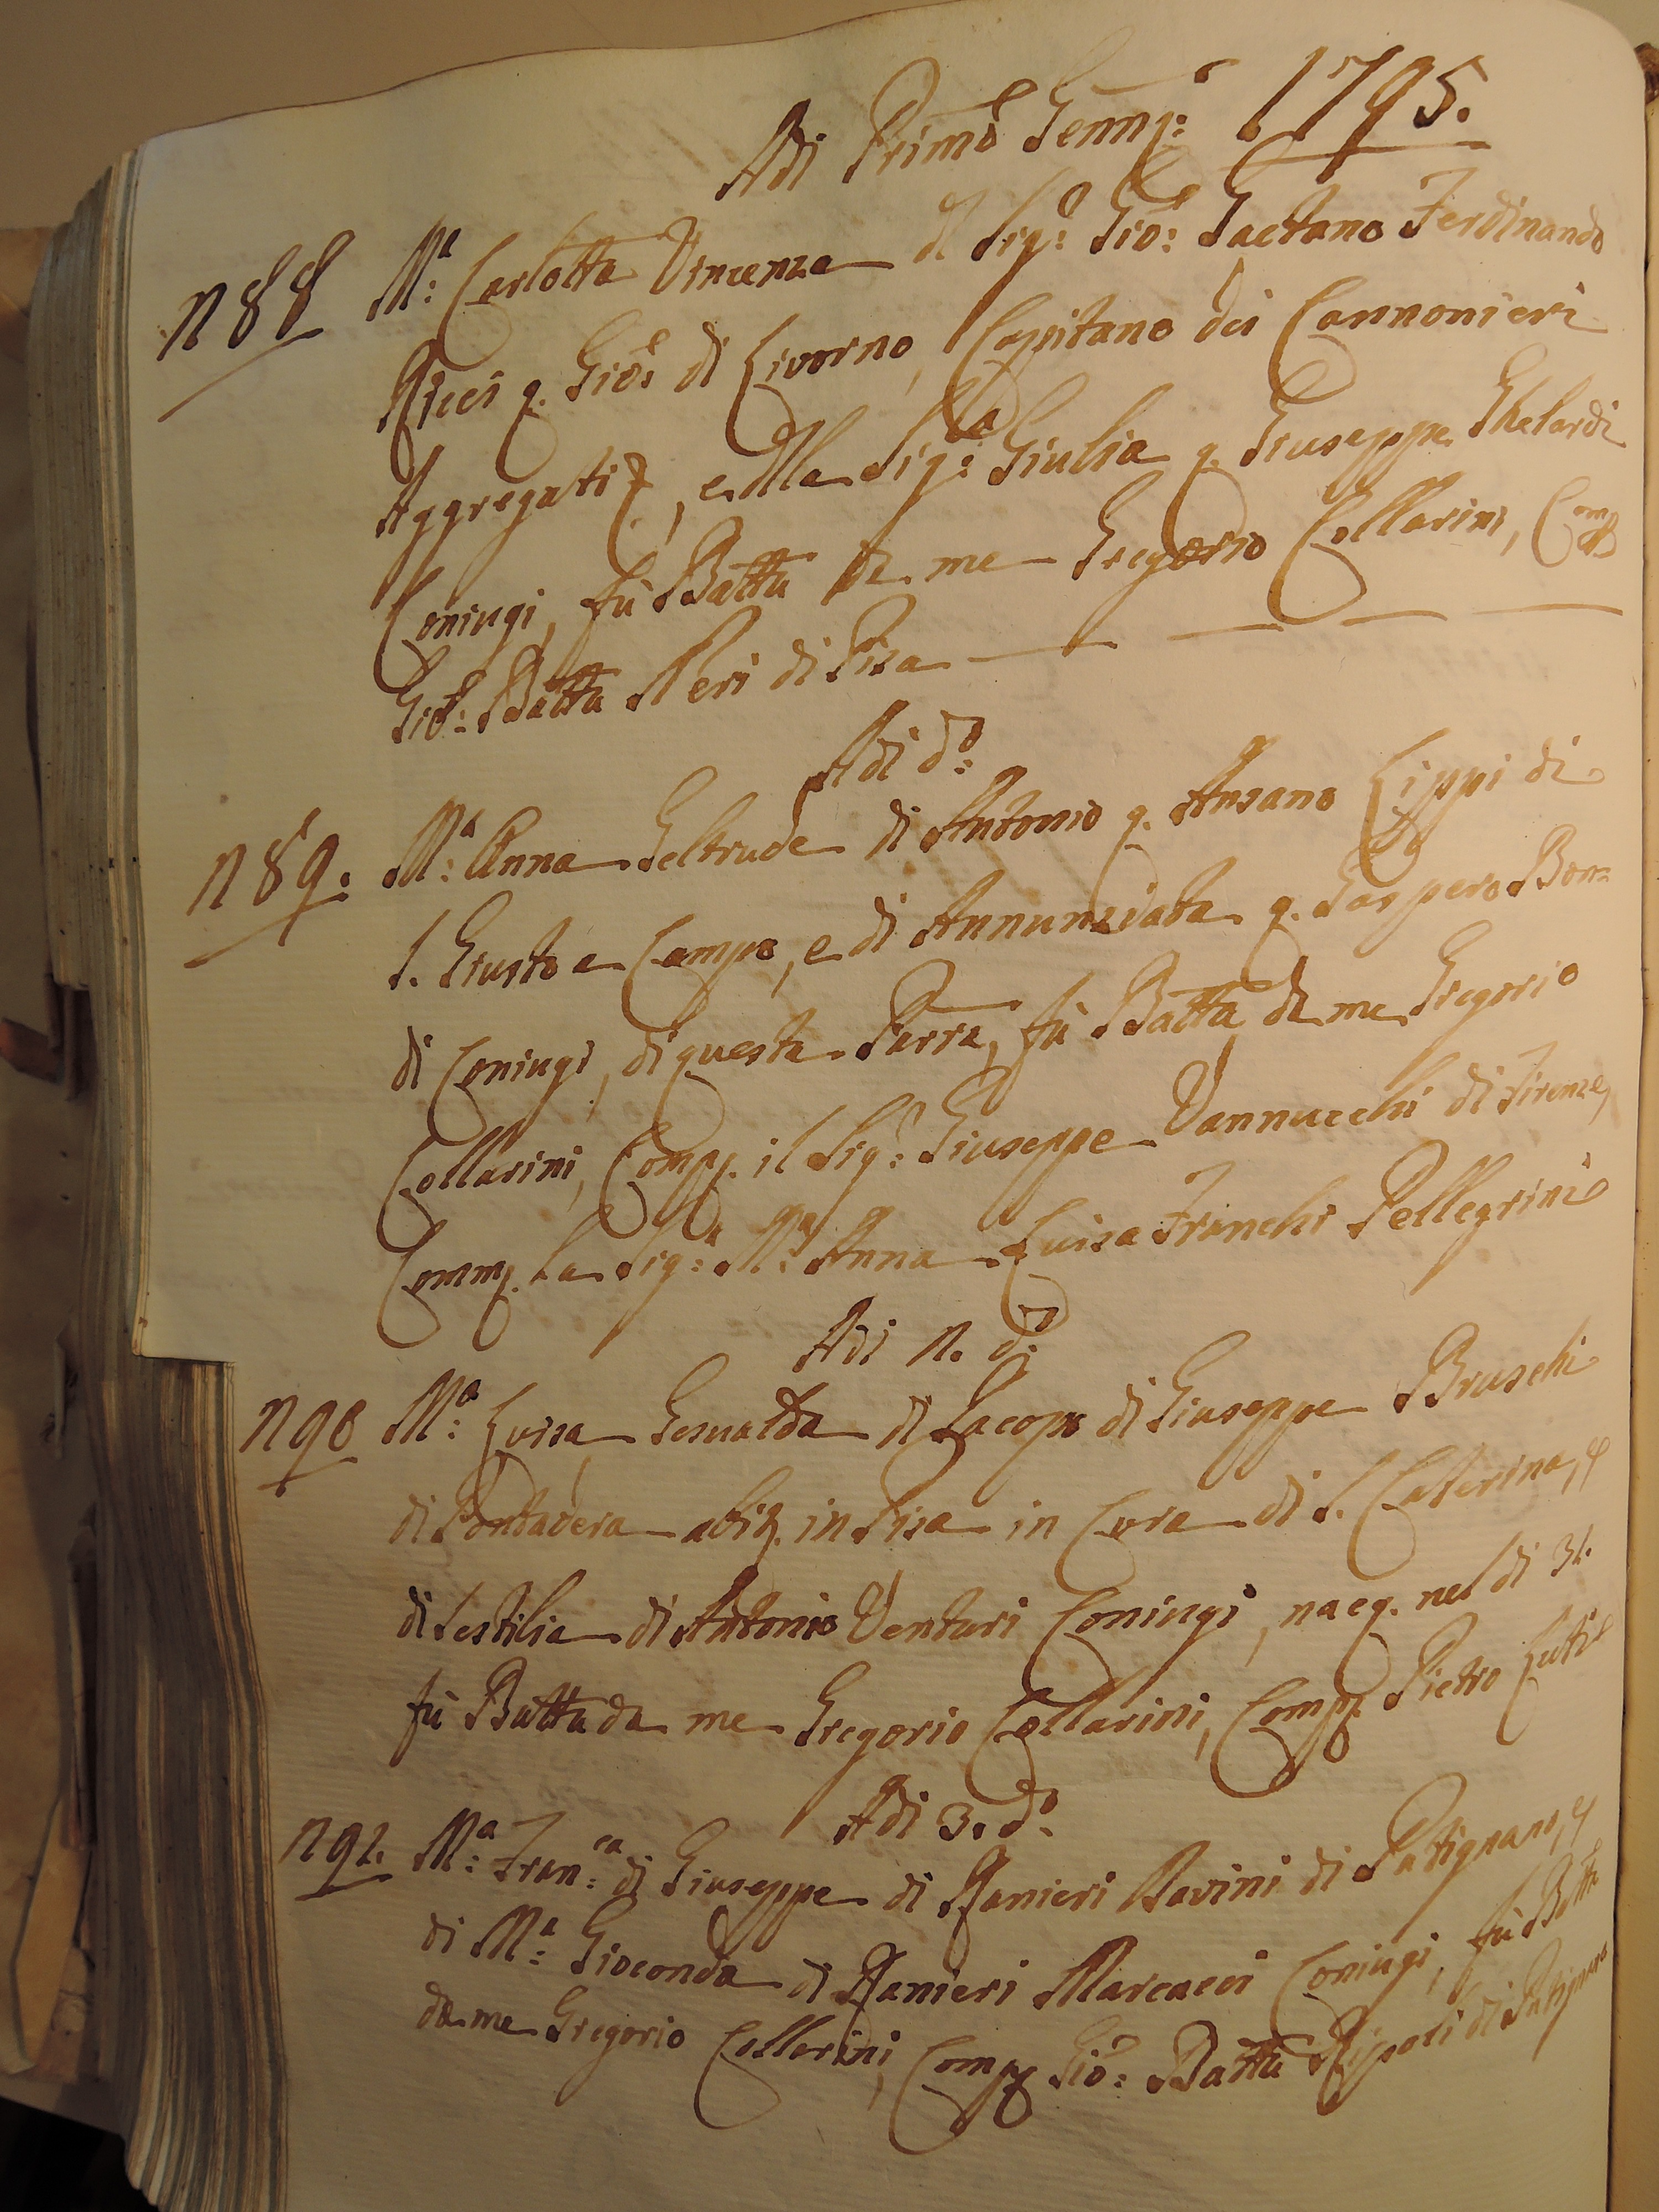 Adi Primo Genn: 1795.
n 88 M:a Carlotta Vincenza di Sig:r Gio: Gaetano Ferdinando
Ricci q. Gio: di Livorno, Capitano dei Cannonieri
Aggregati, e della Sig:ra Giulia q. Giuseppe Ghelardi
Coniugi, fù Batta da me Gregorio Collarini, Comp
Gio: Batta Neri di Pisa
Adi do:
n 89. M:a Anna Geltrude di Antonio q. Ansano Lippi di
S. Giusto a Campo, e di Annunziata q. Gaspero Bon=
di Coniugi, di questa Parra, fù Batta da me Gregorio
Collarini, Comp. il Sig:r Giuseppe Vannucchi di Firenze,
Comm. la Sig:a M:a Anna Luisa Franchi Pellegrini
Adi n. do:
n 90 M:a Luisa Gesualda di Jacopo di Giuseppe Bruschi
di Pontadera abit. in Pisa in Cura di S. Caterina, e
di Sestilia di Antonio Venturi Coniugi, nacq. nel di 31.
fù Batta da me Gregorio Collarini, Comp. Pietro
Adi 3. do:
n 91. M:a Fran:ca di Giuseppe di Ranieri Ravini di Putignano, e
di M:a Gioconda di Ranieri Marcacci Coniugi, fù Batta
da me Gregorio Collarini, Comp Gio: Batta Ripoli di Putignano